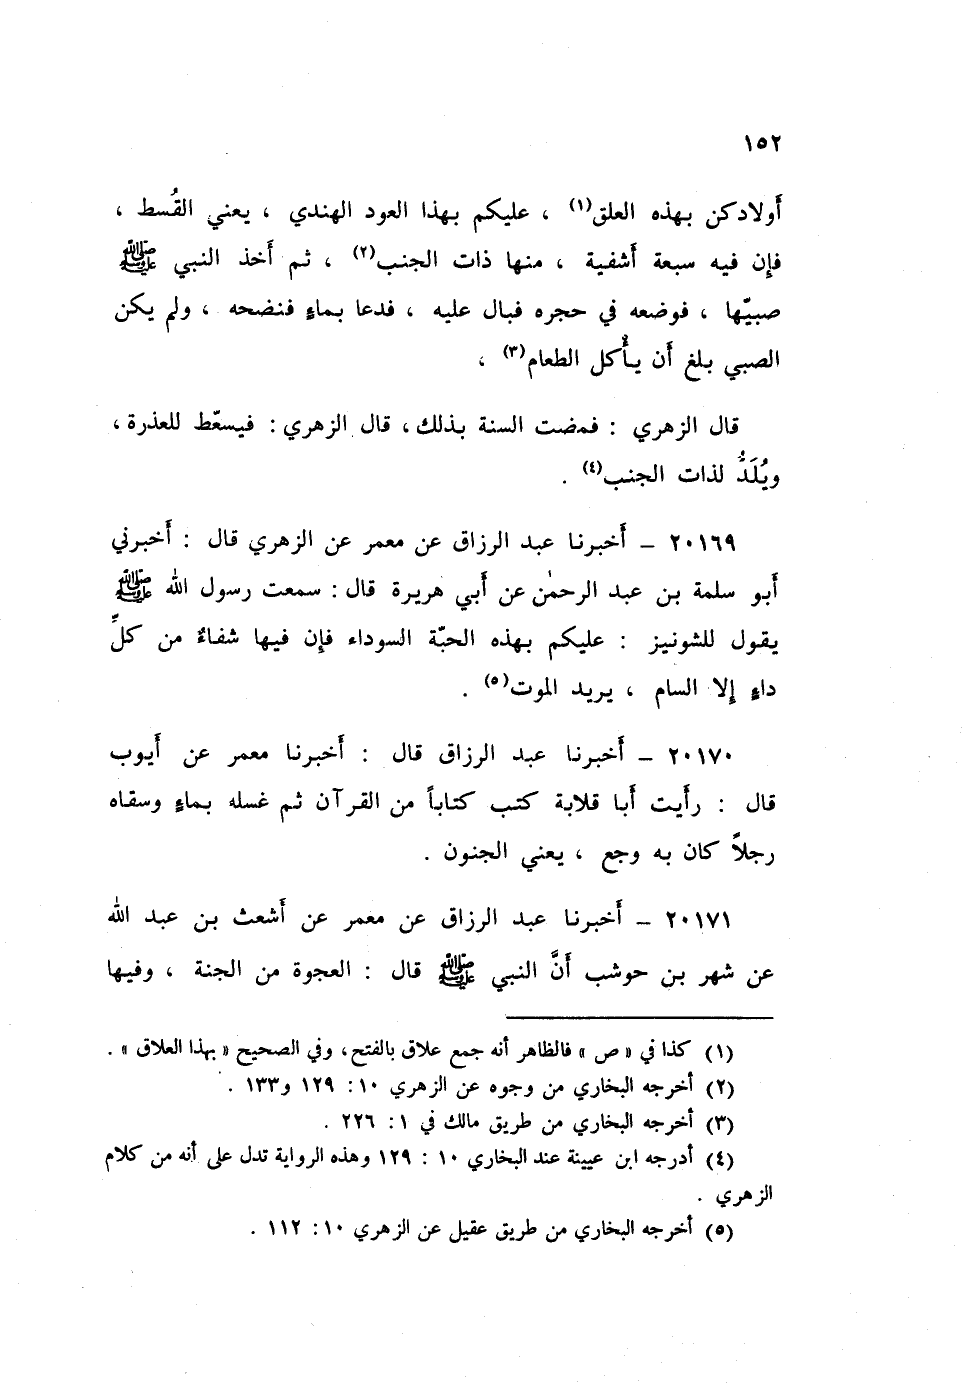 ١٥٢
أَولادكن بهذه العلق(١) ، عليكم بهذا العود الهندي ، يعني القُسط ،
فإن فيه سبعة أَشفية ، منها ذات الجنب(٢) ، ثم أَخذ النبي ﷺ
صبيّها ، فوضعه في حجره فبال عليه ، فدعا بماءٍ فنضحه ، ولم يكن
الصبي بلغ أَن يأْكل الطعام(٣) ،
قال الزهري : فمضت السنة بذلك ، قال الزهري : فيسعّط للعذرة ،
ويُلَدُّ لذات الجنب(٤) .
٢٠١٦٩ – أَخبرنا عبد الرزاق عن معمر عن الزهري قال : أَخبرني
أَبو سلمة بن عبد الرحمٰن عن أَبي هريرة قال : سمعت رسول الله ﷺ
يقول للشونيز : عليكم بهذه الحبّة السوداء فإن فيها شفاءً من كلِّ
داءٍ إلا السام ، يريد الموت(٥) .
٢٠١٧٠ – أَخبرنا عبد الرزاق قال : أَخبرنا معمر عن أَيوب
قال : رأَيت أَبا قلابة كتب كتاباً من القرآن ثم غسله بماءٍ وسقاه
رجلاً كان به وجع ، يعني الجنون .
٢٠١٧١ – أَخبرنا عبد الرزاق عن معمر عن أَشعث بن عبد الله
عن شهر بن حوشب أَنَّ النبي ﷺ قال : العجوة من الجنة ، وفيها
(١) كذا في « ص » فالظاهر أنه جمع علاق بالفتح ، وفي الصحيح « بهذا العلاق » .
(٢) أخرجه البخاري من وجوه عن الزهري ١٠ : ١٢٩ و١٣٣ .
(٣) أخرجه البخاري من طريق مالك في ١ : ٢٢٦ .
(٤) أدرجه ابن عيينة عند البخاري ١٠ : ١٢٩ وهذه الرواية تدل على أنه من كلام
الزهري .
(٥) أخرجه البخاري من طريق عقيل عن الزهري ١٠ : ١١٢ .